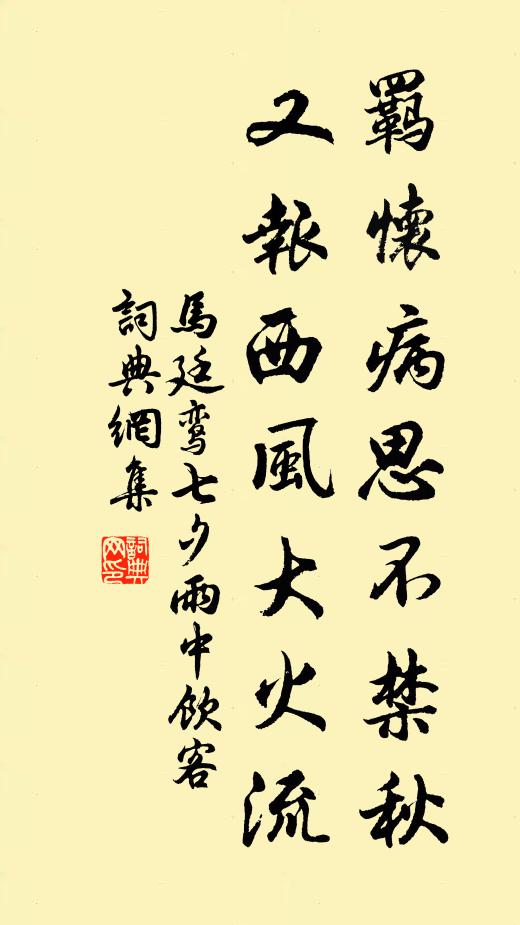 羈懷病思不禁秋
又報西風大火流
馬廷鸾七夕雨中飲客
詞典網集
詞典网印